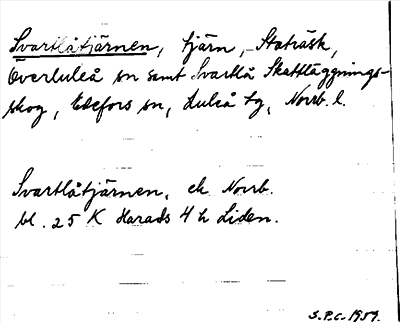 Svartlåtjärnen, tjärn, Staträsk,
Överluleå sn samt Svartlå Skattläggnings-
skog, Edefors sn, Luleå tg, Norrb. l.
Svartlåtjärnen, ek Norrb.
bl. 25 K Harads 4 h Liden.
S.P.C. 1959.